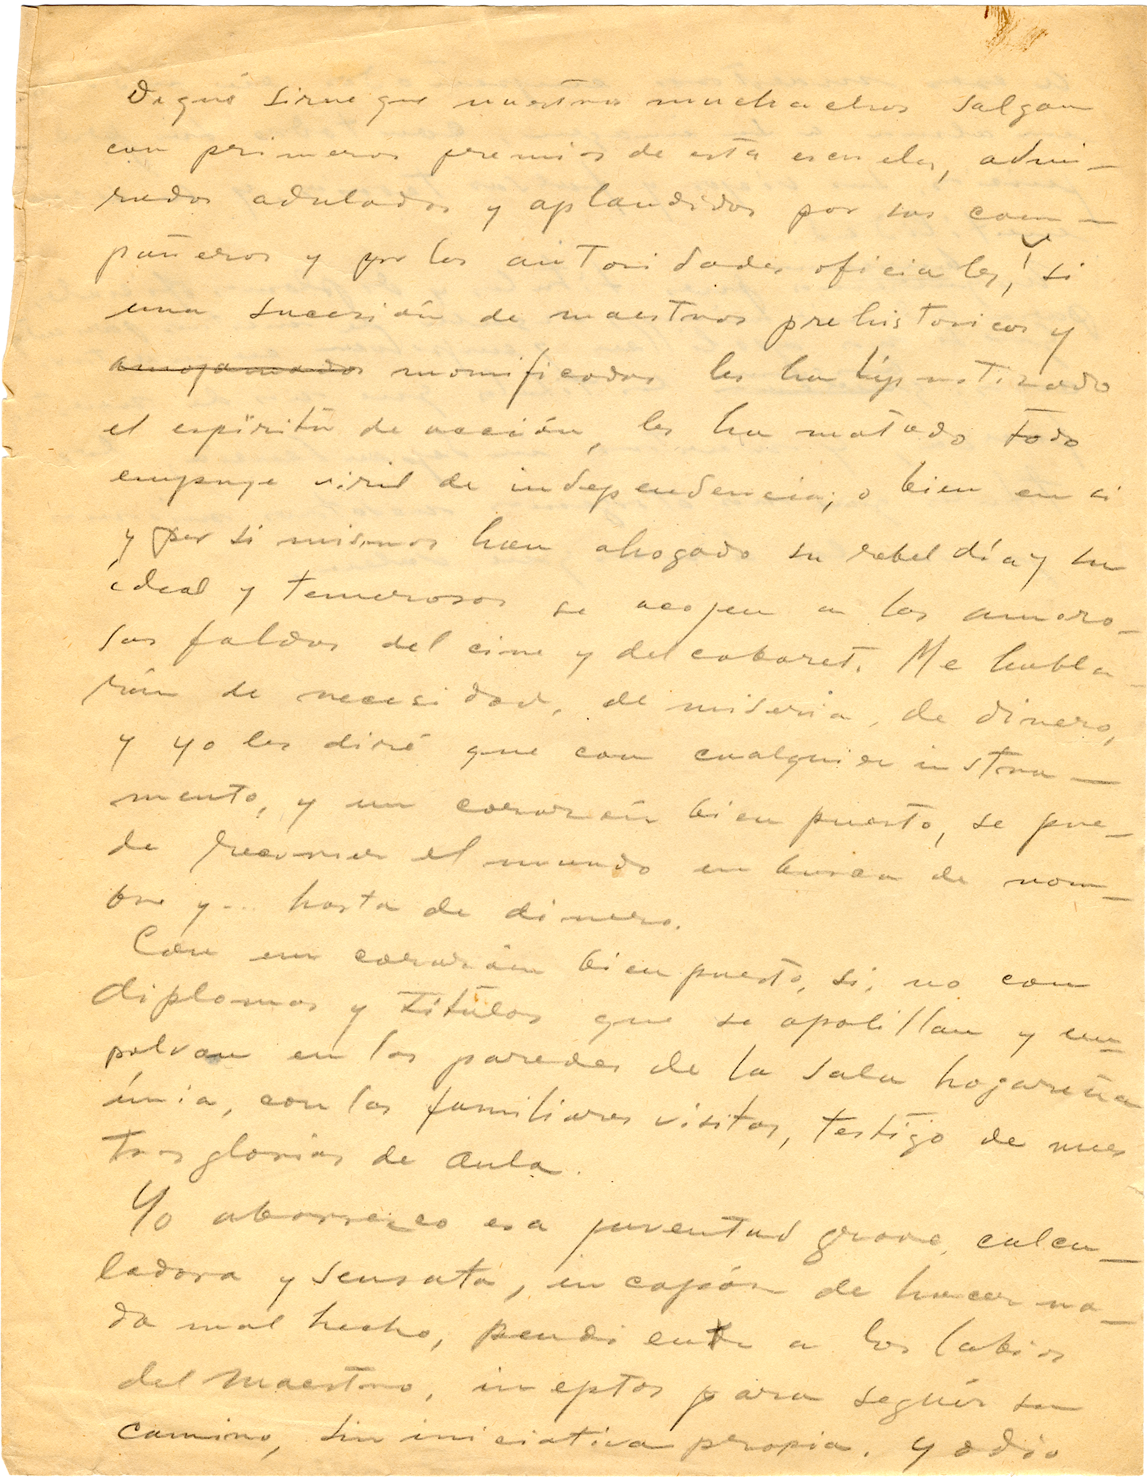 De qué sirve que nuestros muchachos salgan
con primeros premios de esta escuela, admi-
rados adulados y aplaudidos por sus com-
pañeros y por las autoridades oficiales, si
una sucesión de maestros prehistoricos y
amojamados momificados les ha hipnotizado
el espíritu de acción, les ha matado todo
empuje viril de independencia; o bien en si
y por si mismos han ahogado su rebeldía y su
ideal y temerosos se acojen a las amoro-
sas faldas del cine y del cabaret. Me habla-
rán de necesidad, de miseria, de dinero,
y yo les diré que con cualquier instru-
mento, y un corazón bien puesto, se pue-
de recorrer el mundo en busca de nom-
bre y... hasta de dinero.
Con un corazón bien puesto, si; no con
diplomas y títulos que se apolillan y em-
polvan en las paredes de la sala hogareña
única, con las familiares visitas, testigo de nues
tras glorias de aula.
Yo aborrezco esa juventud grave, calcu-
ladora y sensata, incapáz de hacer na-
da mal hecho, pendiente a los labios
del maestro, ineptos para seguir su
camino, sin iniciativa propia. Y odio